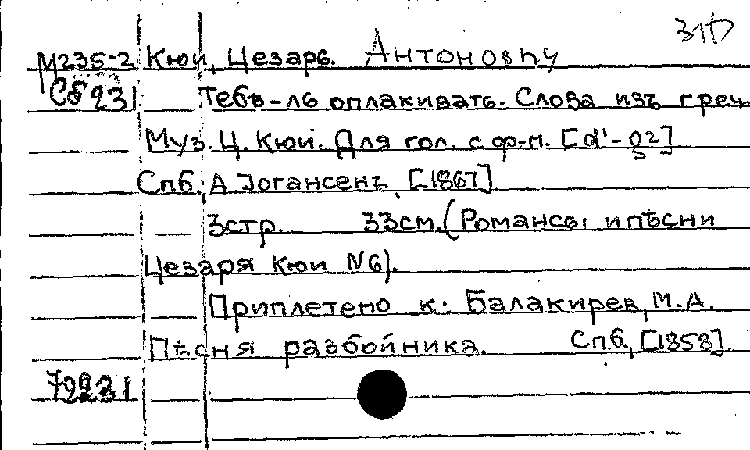 М235-2 Кюи, Цезарь Антонович
Сб 231 Тебѣ-ль оплакивать. Слова изъ греч
Муз. Ц. Кюи. Для гол. с ф-п. [d'-g2]
Спб., А Iогансенъ, [1867]
3стр. 33см. (Романсы и пѣсни
Цезаря Кюи №6).
Приплетено к: Балакирев, М.А.
Пѣсня разбойника. Спб, [1858]